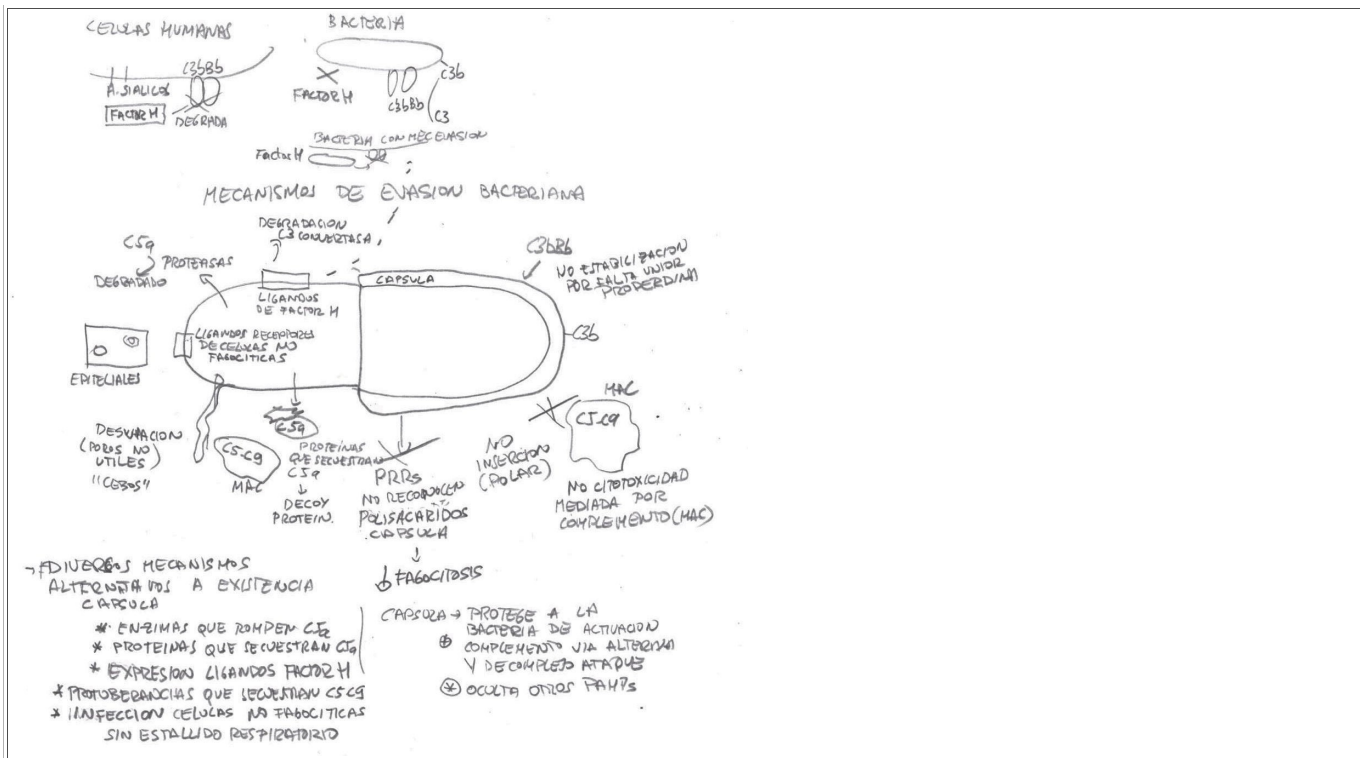 CELULAS HUMANAS
BACTERIA
C3bBb
A. SIALICOS
FACTOR H
DEGRADA
FACTOR H
C3bBb
C3b
C3
BACTERIA CON MEC EVASION
Factor H
MECANISMOS DE EVASION BACTERIANA
C5a
DEGRADADO
PROTEASAS
DEGRADACION
C3 CONVERTASA
LIGANDOS
DE FACTOR H
CAPSULA
C3bBb
NO ESTABILIZACION
POR FALTA UNION
PROPERDINA
C3b
LIGANDOS RECEPTORES
DE CELULAS NO
FAGOCITICAS
EPITELIALES
DESVIACION
(POROS NO
UTILES)
"CEBOS"
C5-C9
MAC
C5a
PROTEINAS
QUE SECUESTRAN
C5a
↓
DECOY
PROTEIN.
PRRs
NO RECONOCEN
POLISACARIDOS
CAPSULA
↓
↓ FAGOCITOSIS
NO
INSERCION
(POLAR)
MAC
C5-C9
NO CITOTOXICIDAD
MEDIADA POR
COMPLEMENTO (MAC)
DIVERSOS MECANISMOS
ALTERNATIVOS A EXISTENCIA
CAPSULA
* ENZIMAS QUE ROMPEN C5a
* PROTEINAS QUE SECUESTRAN C5a
* EXPRESION LIGANDOS FACTOR H
* PROTUBERANCIAS QUE SECUESTRAN C5C9
* INFECCION CELULAS NO FAGOCITICAS
SIN ESTALLIDO RESPIRATORIO
CAPSULA → PROTEGE A LA
BACTERIA DE ACTIVACION
COMPLEMENTO VIA ALTERNA
Y DE COMPLEJO ATAQUE
* OCULTA OTROS PAMPs